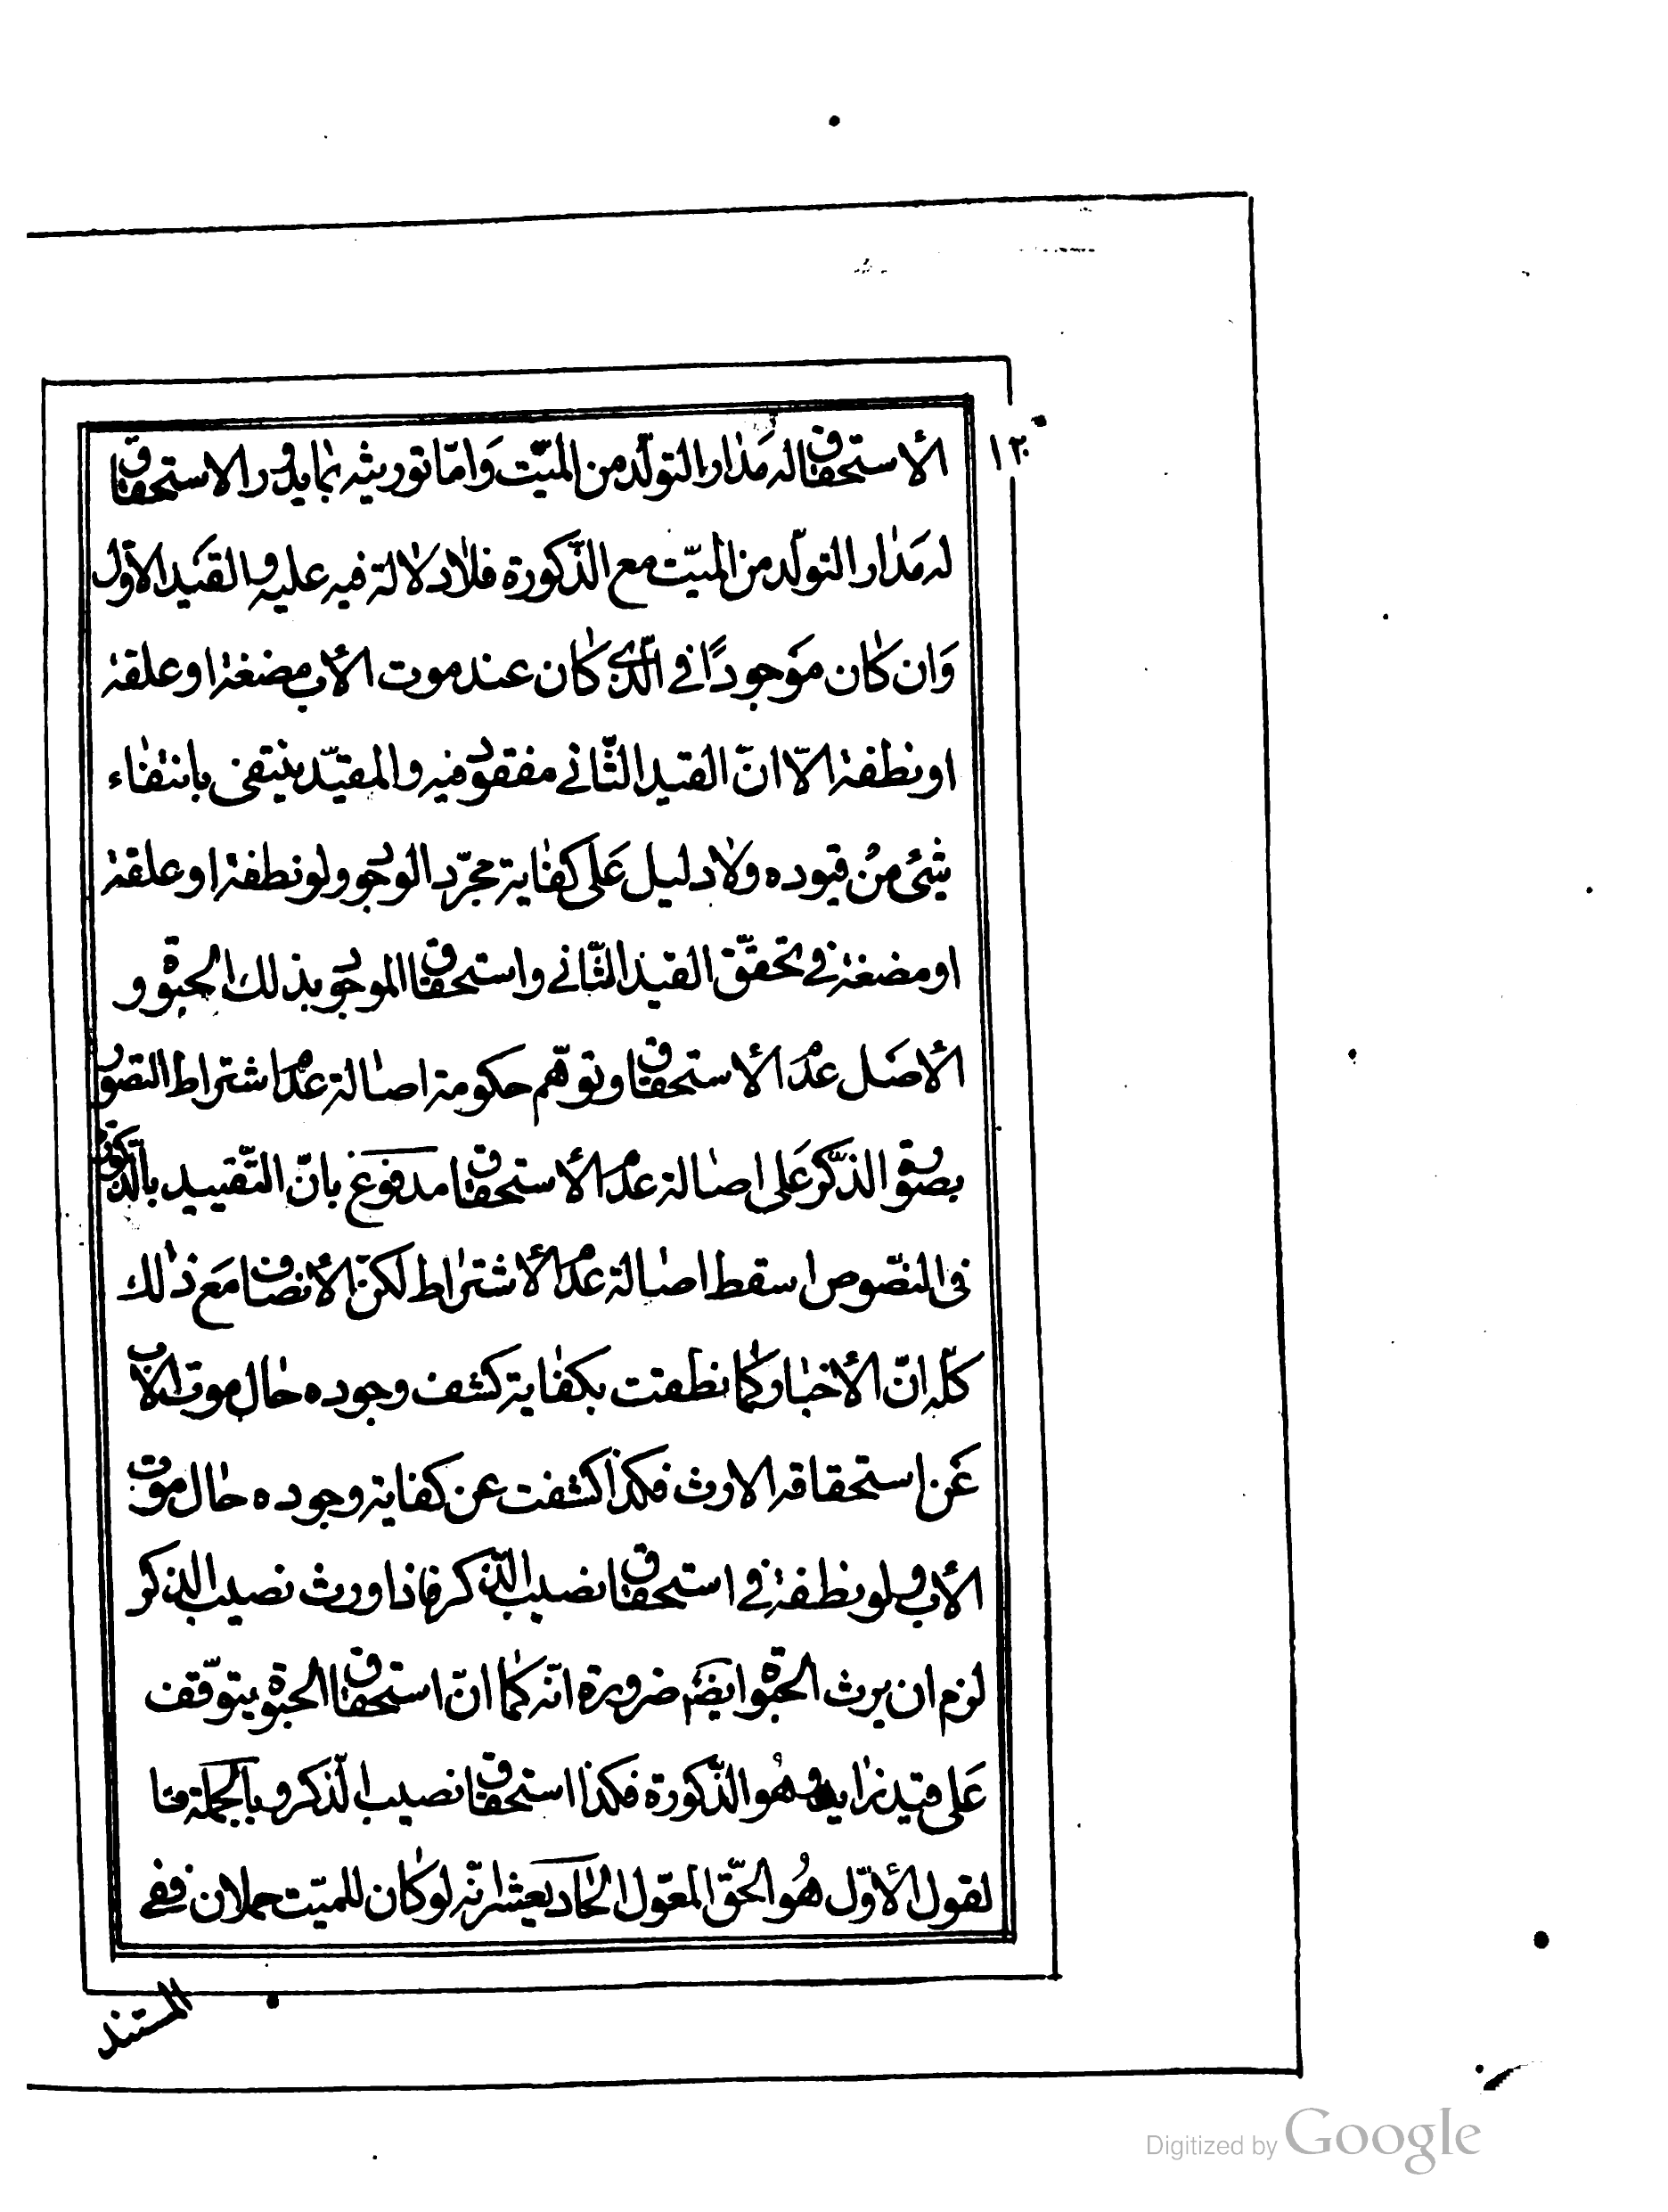 ١٢٠
الأستحقاق له مَدٰار التولّد من الميّت وَامّا توريثه بما يدور الاستحقاق
له مَدٰار التولّد من الميّت مع الذّكورة فلا دلالة فيه عليه والقَيد الاوّل
وَان كٰان مَوجودًا في الّذى كٰان عند موت الأب مضغة او علقة
او نطفة الّا انّ القيد الثّاني مفقود فيه والمقيّد ينتفى بانتفٰاء
شئ مِن قيوده ولا دليل عَلى كفٰاية مجرّد الوجود ولو نطفة او علقة
او مضغة في تحقّق القيد الثّاني واستحقاق الموجود بذلك الحبوة و
الأصَل عدَم الأستحقاق وتوهّم حكومة اصٰالة عدم اشتراط التصور
بصورة الذّكر عَلى اصٰالة عدم الأستحقاق مدفوع بانّ التّقييد بالذّكورة
فى النصّوص اسقط اصٰالة عدم الأشترٰاط لكنّ الأنصاف مَع ذٰلك
كلّه انّ الأخبٰار كمٰا نطقت بكفٰاية كشف وجوده حٰال موت الاب
عَن استحقاقه الارث فكذا كشفت عن كفاية وجوده حٰال موت
الأب ولو نطفة في استحقاق نصيب الذّكر فاذا ورث نصيب الذكر
لزم ان يرث الحبوة ايضَم ضرورة انّه كمٰا انّ استحقاق الحبوة يتوّقف
عَلى قيد زٰايد وهُو الذّكورة فكذا استحقاق نصيب الذّكر وبالجملة فا
لقول الأوّل هُو الحقّ المعوّل الحٰاديعشر انّه لو كٰان للميّت حملان ففي
المستند
Digitized by Google